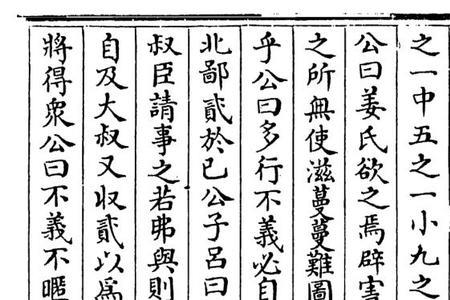 之一中五之一小九之
公曰姜氏欲之焉辟害
之所無使滋蔓蔓難圖
乎公曰多行不義必自
北鄙貳於己公子呂曰
叔臣請事之若弗與則
自及大叔又收貳以為
將得衆公曰不義不暱